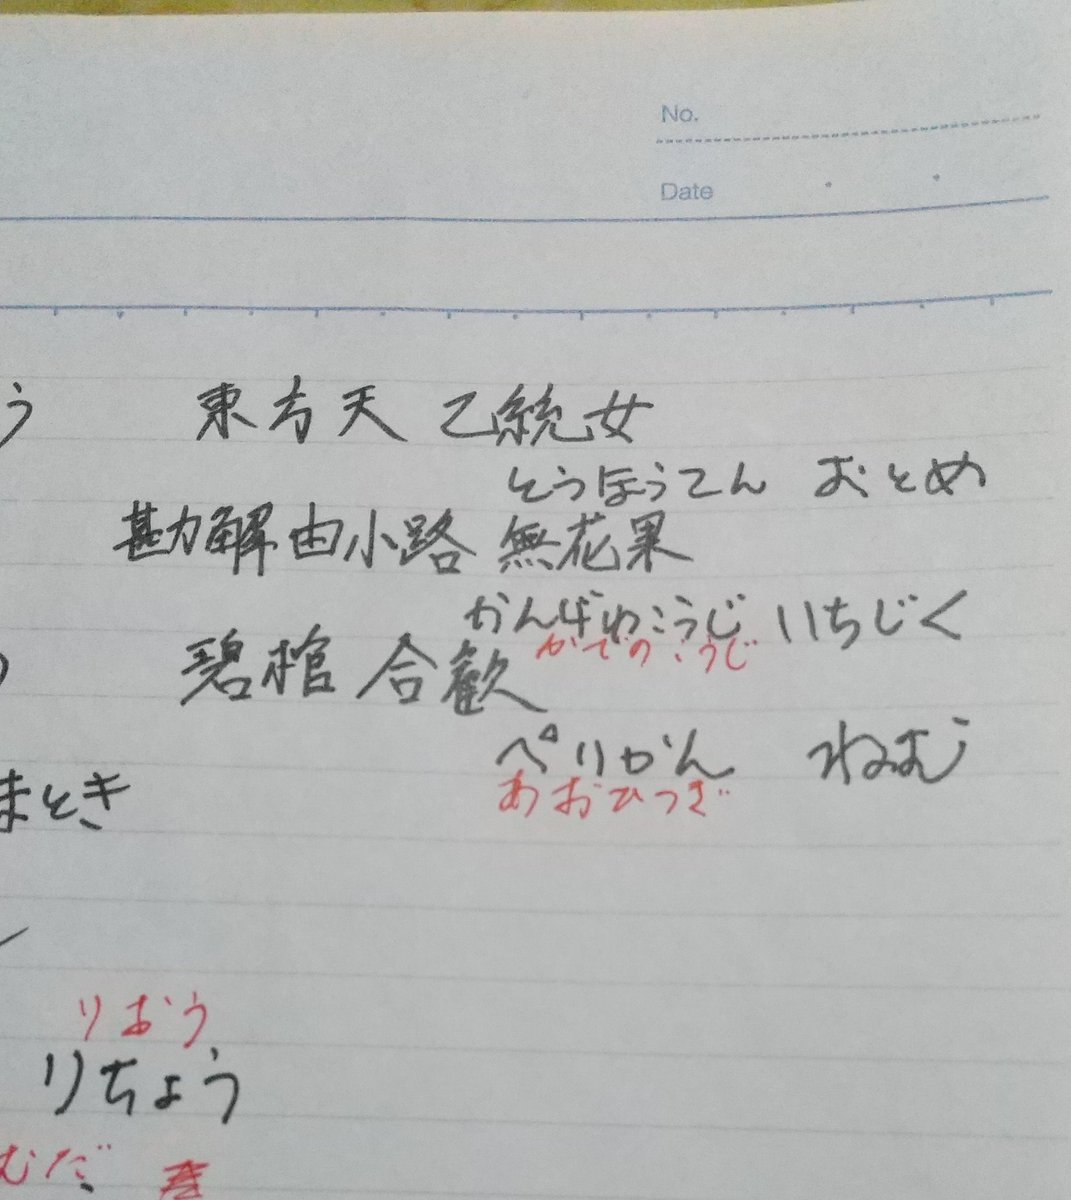 No.
Date
う
東方天 乙統女
とうほうてん おとめ
勘解由小路 無花果
かんげゆこうじ いちじく
かでのこうじ
碧棺 合歓
ぺりかん ねむ
あおひつぎ
まとき
りおう
りちょう
むだ